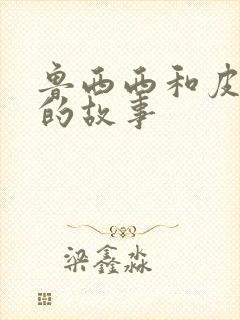 鲁西西和皮
的故事
梁鑫淼